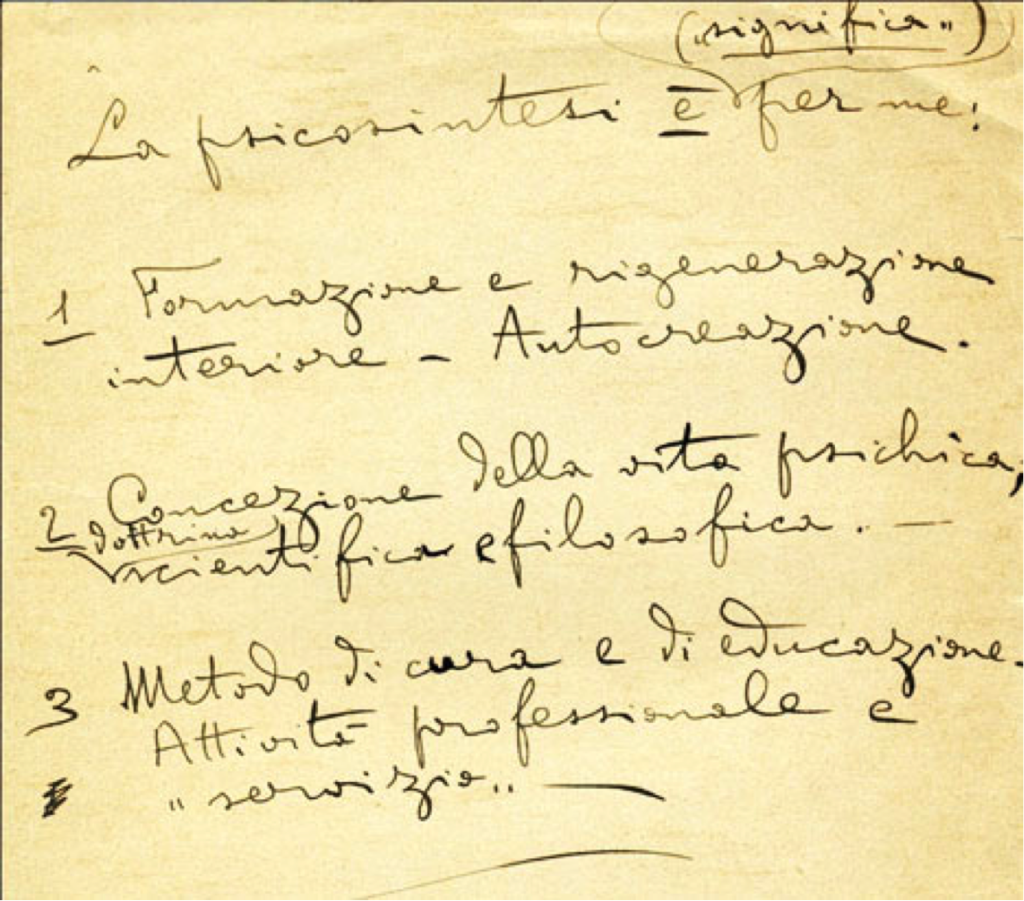 („significa")
La psicosintesi è per me:
1 Formazione e rigenerazione
interiore - Autocreazione.
2 Concezione della vita psichica,
dottrina
scientifica e filosofica. —
3 Metodo di cura e di educazione.
Attività professionale e
"servizio„ —